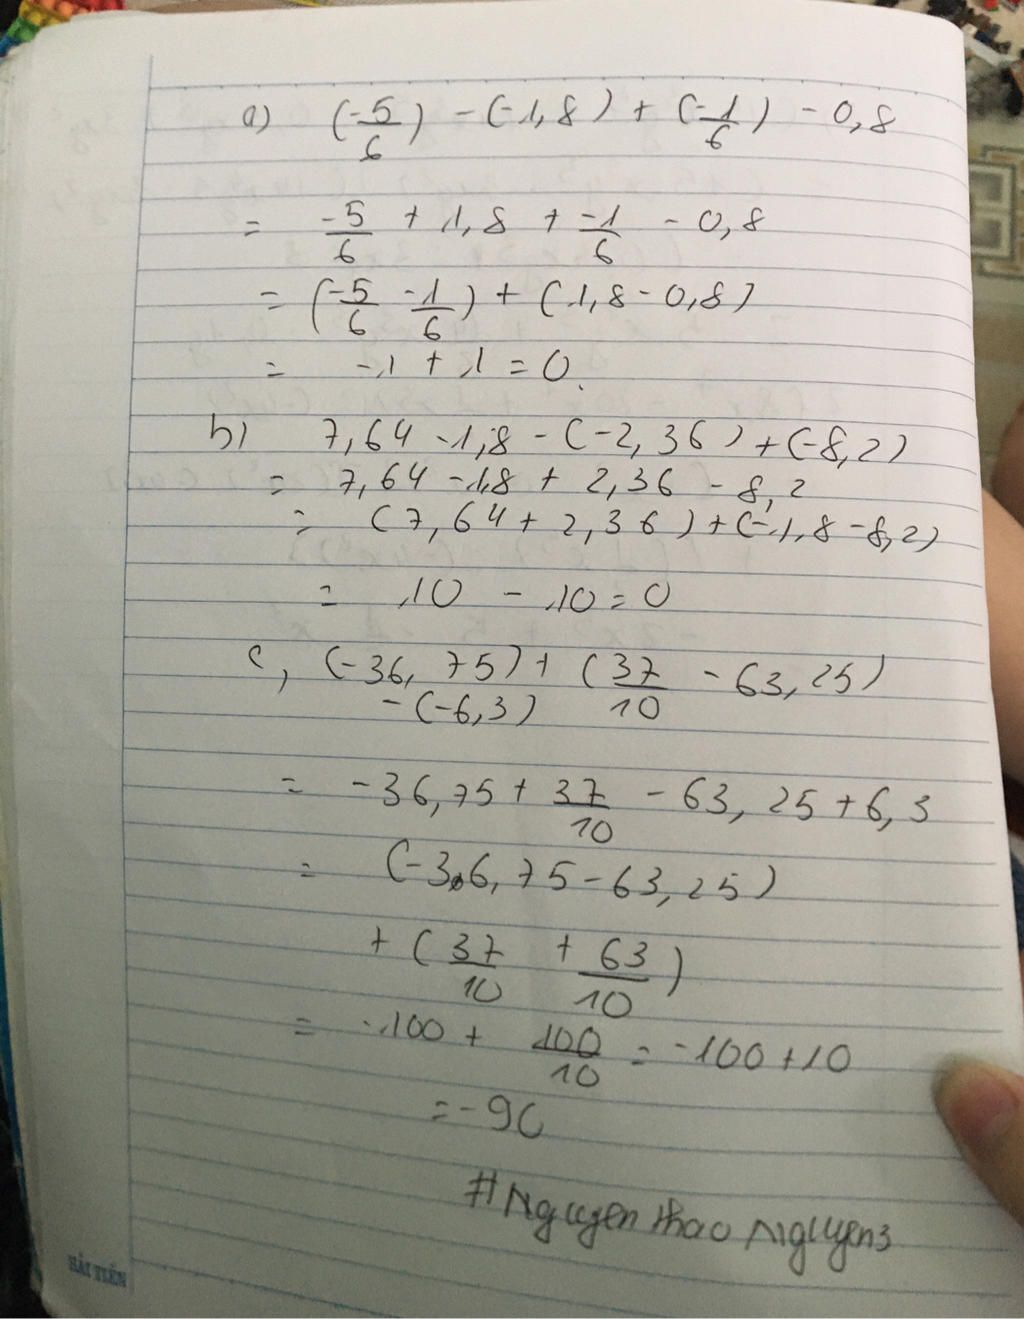 a) (-5/6) - (-1,8) + (-1/6) - 0,8
= -5/6 + 1,8 + -1/6 - 0,8
= (-5/6 - 1/6) + (1,8 - 0,8)
= -1 + 1 = 0.
b) 7,64 - 1,8 - (-2,36) + (-8,2)
= 7,64 - 1,8 + 2,36 - 8,2
= (7,64 + 2,36) + (-1,8 - 8,2)
= 10 - 10 = 0
c, (-36,75) + (37/10 - 63,25)
- (-6,3)
= -36,75 + 37/10 - 63,25 + 6,3
= (-36,75 - 63,25)
+ (37/10 + 63/10)
= -100 + 100/10 = -100 + 10
= -90
#Nguyenthaonguyen3
HẢI TIẾN